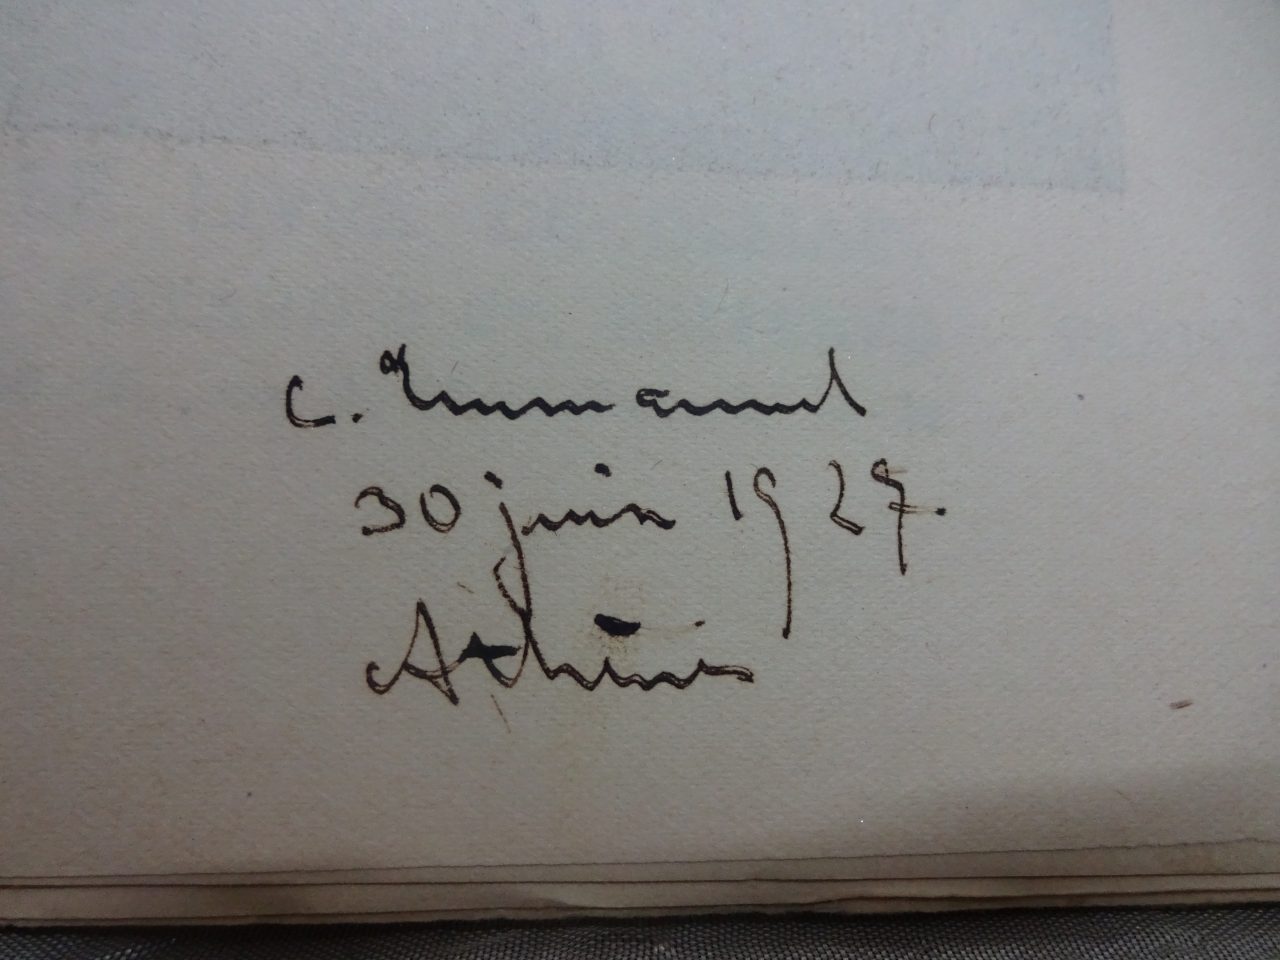 C. Emmanuel
30 juin 1927.
Athènes